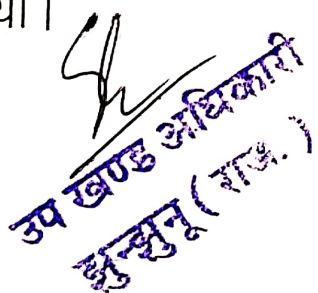 था।
उप खण्ड अधिकारी
झुन्झुनू (राज.)